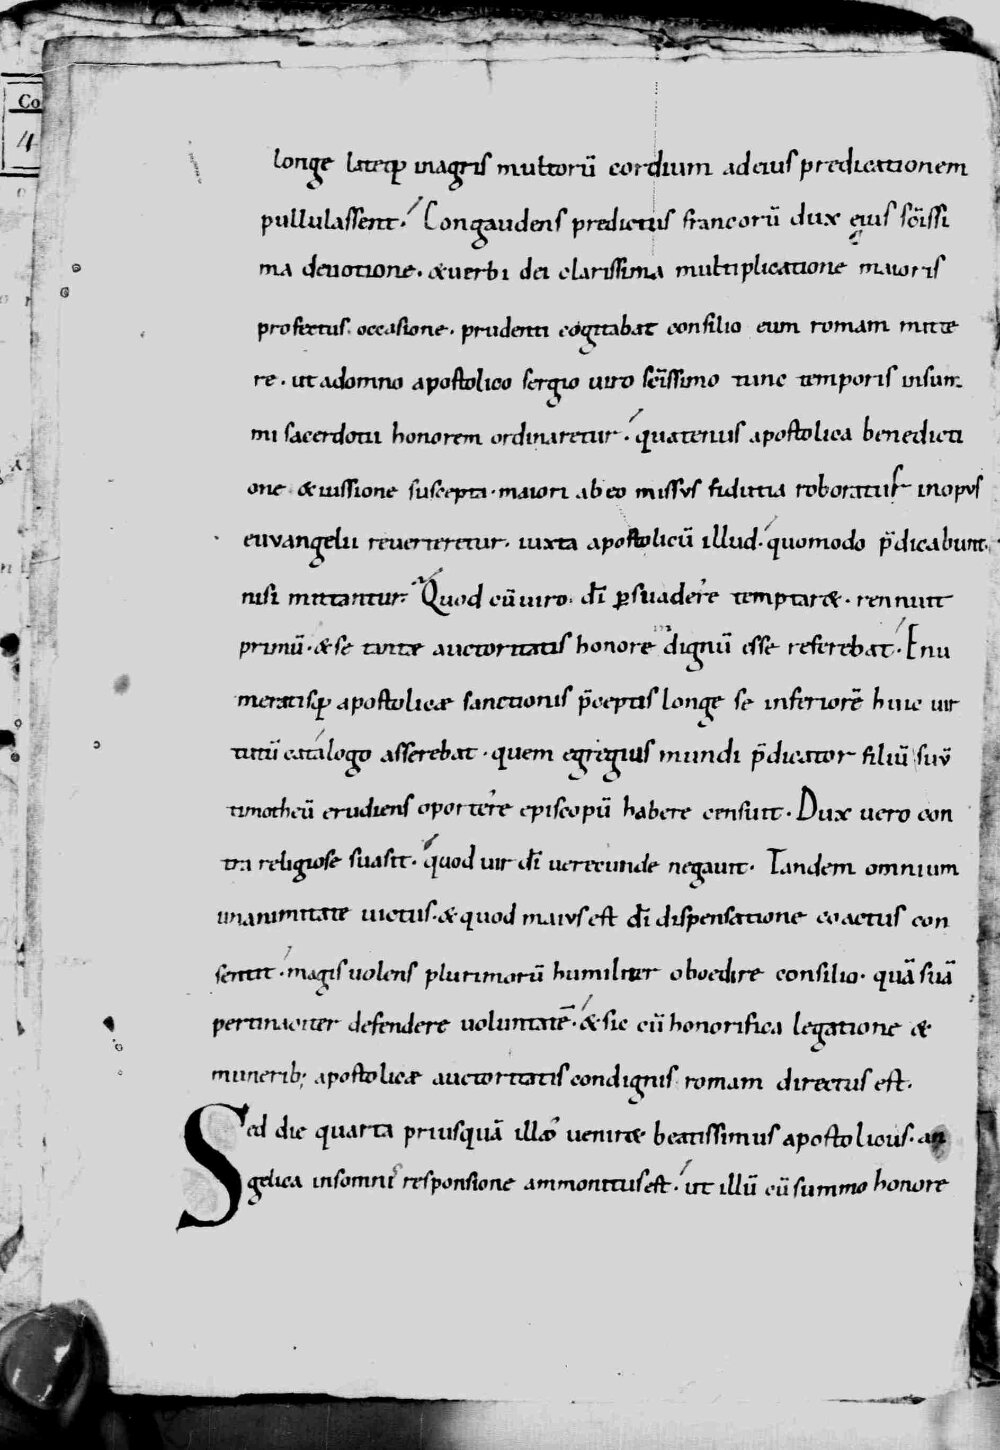 Co
4
longe lateq; in agris multorū cordium ad eius predicationem
pullulassent. Congaudens predictus francorū dux eius sc̄issi
ma deuotione. & uerbi dei clarissima multiplicatione maioris
profectus. occasione. prudenti cogitabat consilio eum romam mitte
re. ut adomno apostolico sergio uiro sc̄issimo tunc temporis insum
mi sacerdotii honorem ordinaretur. quatenus apostolica benedicti
one & iussione suscepta. maiori ab eo missus fidutia roboratus in opus
euvangelii reuerteretur. iuxta apostolicū illud. quomodo p̄dicabunt.
nisi mittantur. Quod cū uiro. dī ꝑsuadere temptar&. rennuit
primū. & se tantæ auctoritatis honore dignū esse referebat. Enu
meratisq; apostolicæ sanctionis p̄ceptis longe se inferiorē huic uir
tutū catalogo asserebat. quem egregius mundi p̄dicator filiū suū
timotheū erudiens oportere episcopū habere censuit. Dux uero con
tra religiose suasit. quod uir dī uerecunde negauit. Tandem omnium
unanimitate uictus. & quod maius est dī dispensatione coactus con
sentit. magis uolens plurimorū humiliter oboedire consilio. quā suā
pertinaciter defendere uoluntatē. & sic cū honorifica legatione &
munerib; apostolicæ auctoritatis condignis romam directus est.
Sed die quarta priusquā illo ueniret beatissimus apostolicus. an
gelica insomni responsione ammonitus est. ut illū cū summo honore